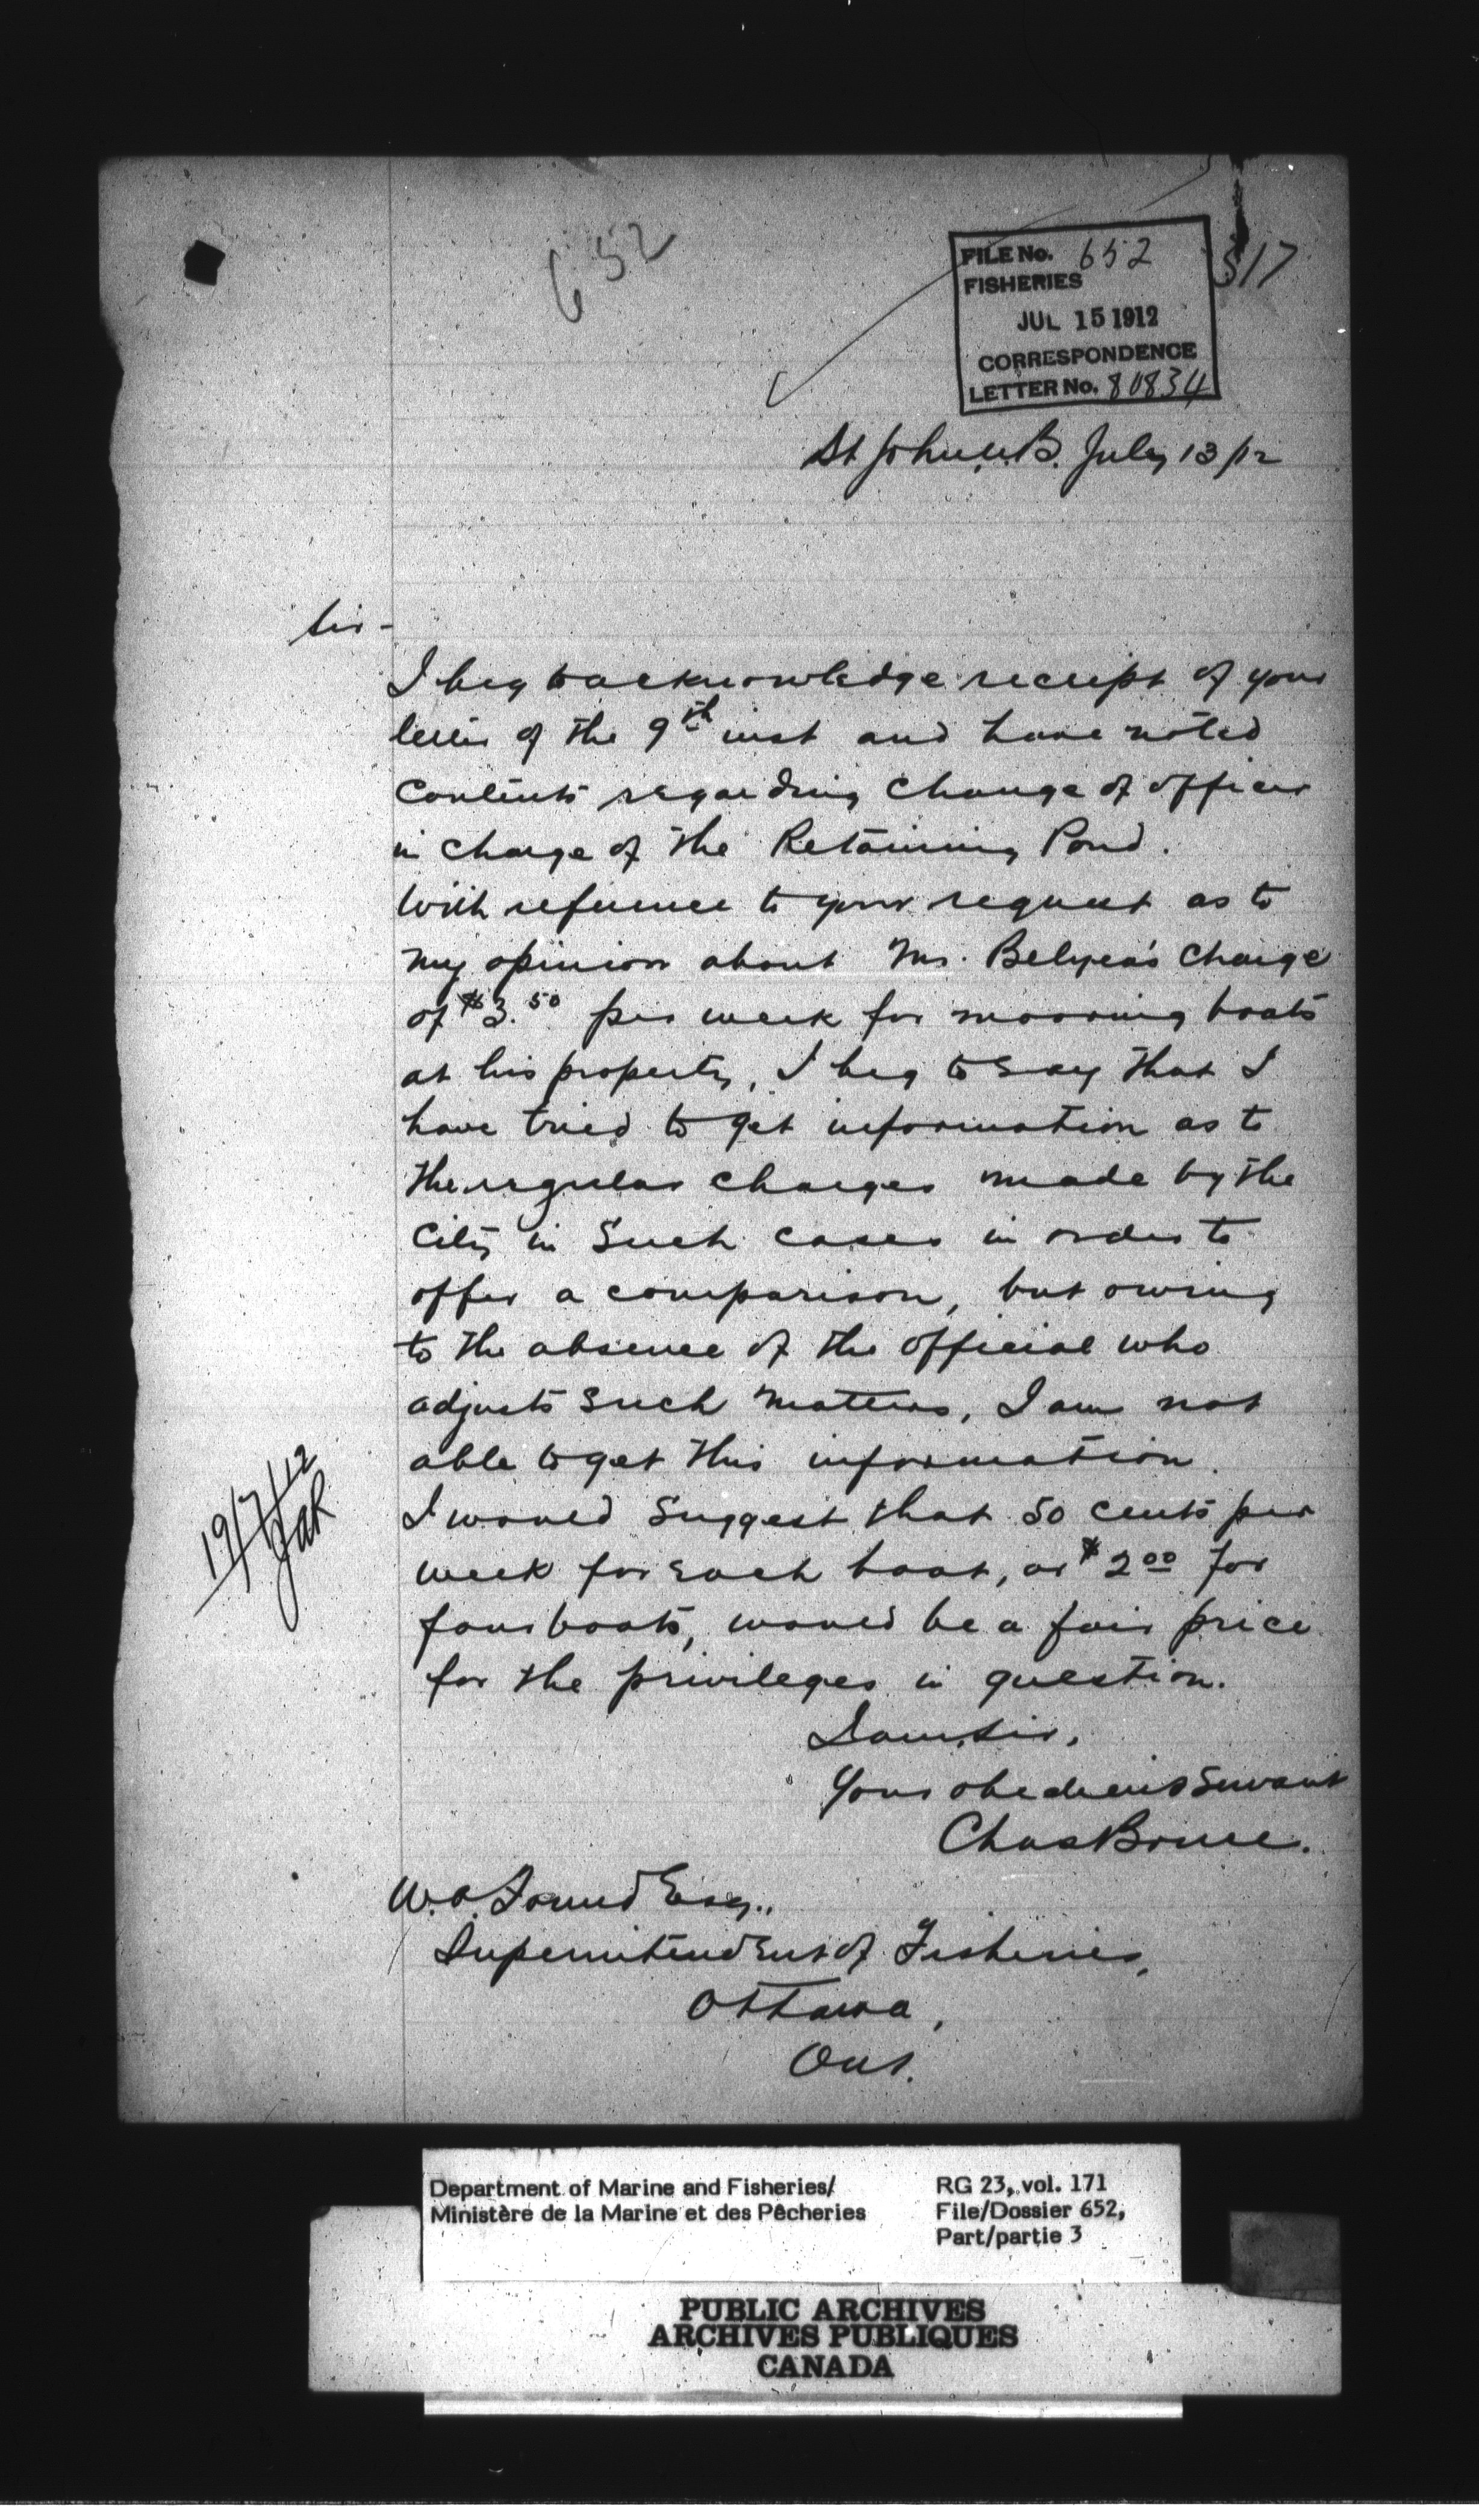 652
FILE No. 652
FISHERIES
JUL 15 1912
CORRESPONDENCE
LETTER No. 80834
317
St John, N.B. July 13/12
Sir -
I beg to acknowledge receipt of your
letter of the 9th inst and have noted
contents regarding change of officer
in charge of the Retaining Pond.
With reference to your request as to
my opinion about Mr. Belyea's charge
of $3.50 per week for mooring boats
at his property, I beg to say that I
have tried to get information as to
the regular charges made by the
City in such cases in order to
offer a comparison, but owing
to the absence of the official who
adjusts such matters, I am not
able to get this information.
I would suggest that 50 cents per
week for each boat, or $2.00 for
four boats, would be a fair price
for the privileges in question.
I am, Sir,
Your obedient Servant
Chas Bruce.
19/7/12
W.A. Found Esq.,
Superintendent of Fisheries,
Ottawa,
Ont.
Department of Marine and Fisheries/
Ministère de la Marine et des Pêcheries
RG 23, vol. 171
File/Dossier 652,
Part/partie 3
PUBLIC ARCHIVES
ARCHIVES PUBLIQUES
CANADA